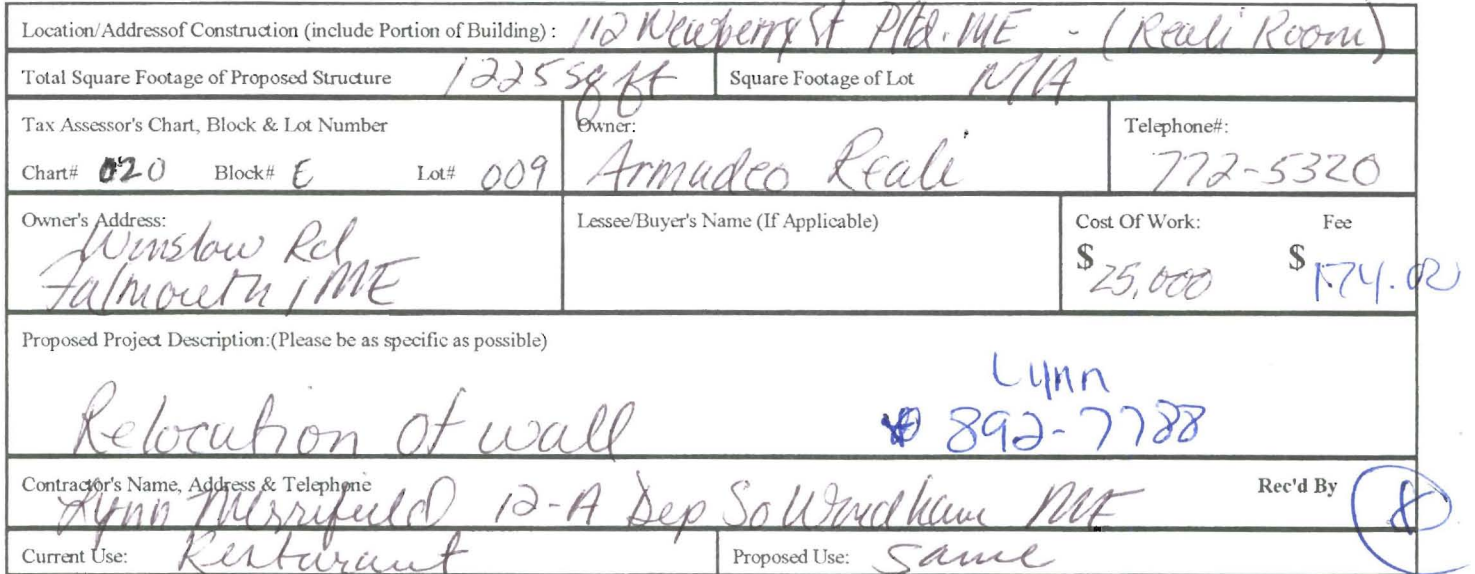 Location/Addressof Construction (include Portion of Building) : 112 Newberry St Ptld. ME - (Reali Room)
Total Square Footage of Proposed Structure 1225 sq ft Square Footage of Lot N/A
Tax Assessor's Chart, Block & Lot Number Owner: Telephone#:
Chart# 020 Block# E Lot# 009 Armadeo Reali 772-5320
Owner's Address: Lessee/Buyer's Name (If Applicable) Cost Of Work: Fee
Winslow Rd
Falmouth, ME $ 25,000 $ 174.00
Proposed Project Description:(Please be as specific as possible)
Lynn
Relocation of wall # 892-7788
Contractor's Name, Address & Telephone Rec'd By
Lynn Merrifield 12-A Dep So Windham ME
Current Use: Restarant Proposed Use: Same